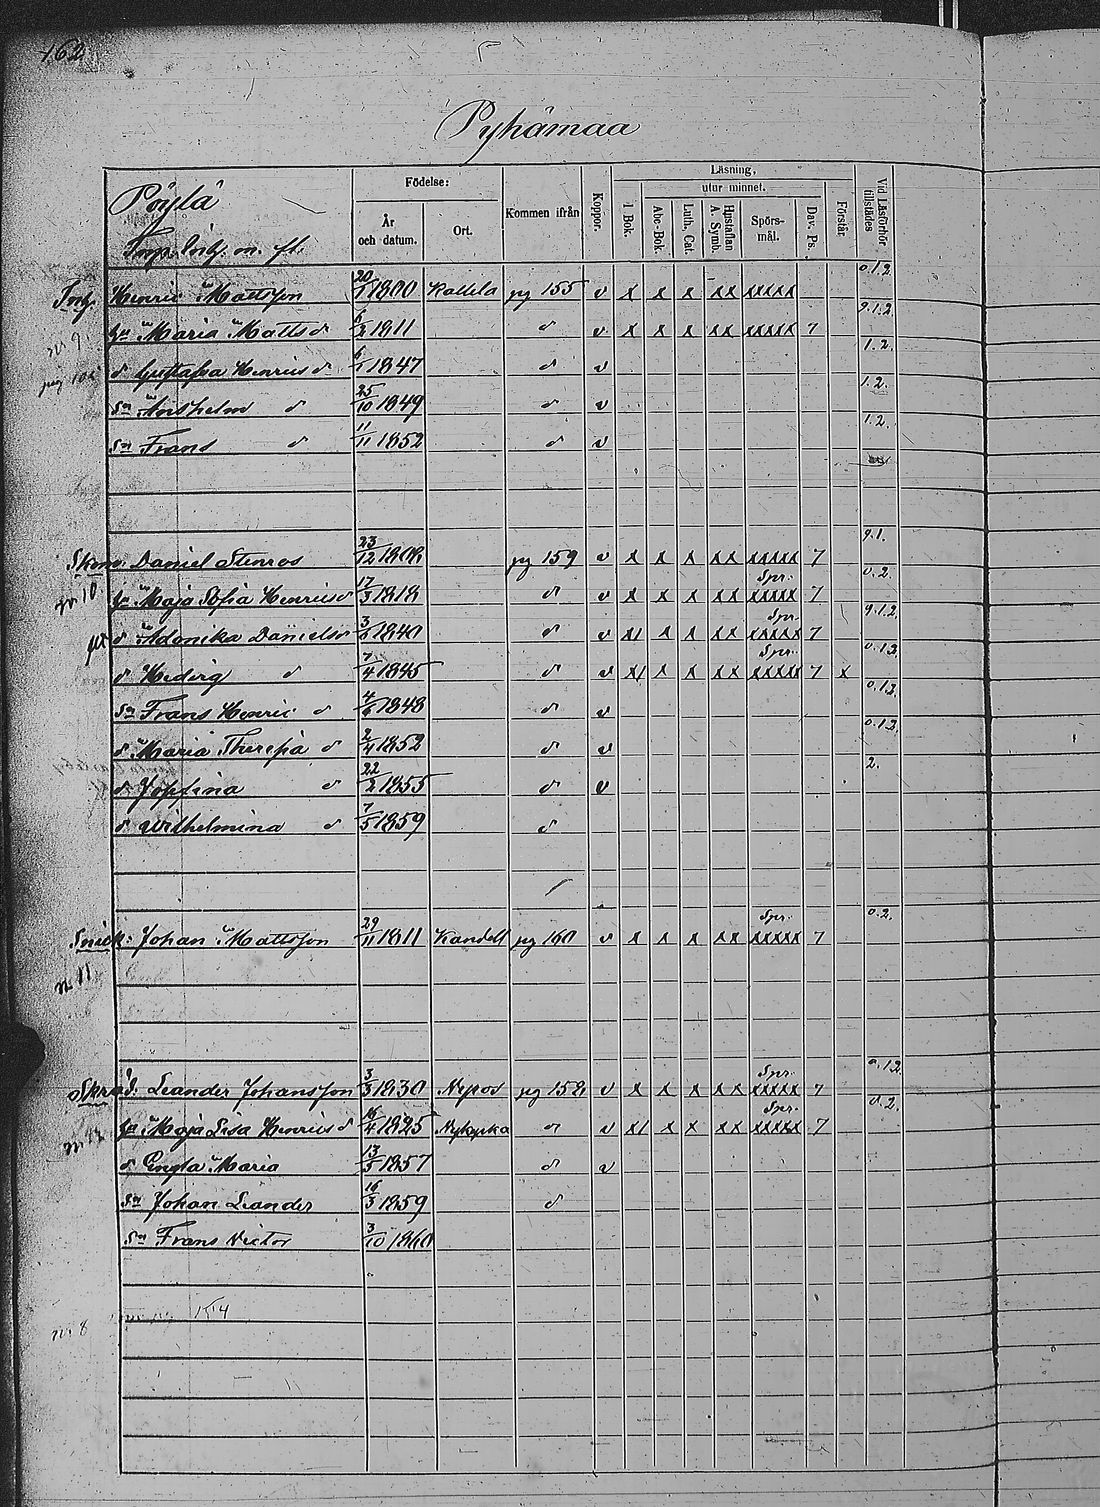 162
Pyhämaa
Pöylä
Födelse:
År och datum.
Ort.
Kommen ifrån
Koppor.
Läsning,
utur minnet.
I Bok.
Abc-Bok.
Luth. Cat.
Hustaflan A. Symb.
Spörsmål.
Dav. Ps.
Förstår.
Vid Läsförhör tillstädes
Henric Mattsson 20/1 1800 Kallela pg 155 v x x x xx xxxxx 0.12.
hu Maria Mattsd 6/2 1811 d v x x x xx xxxxx 7 9.1.2.
no 9.
d Gustafva Henricsd 6/1 1847 d v 1.2.
sn Anshelm d 25/10 1849 d v 1.2.
sn Frans d 11/11 1852 d v 1.2.
Daniel Stenros 23/12 1808 pg 159 v x x x xx xxxxx 7 9.1.
no 10 hu Maja Sofia Henricsd 17/3 1818 d v x x x xx Spr. xxxxx 7 0.2.
d Adonika Danielsd 1840 d v x/ x x xx Spr. xxxxx 7 9.1.2.
d Hedvig d 7/4 1845 d v x/ x x xx Spr. xxxxx 7 x 0.12.
sn Frans Henric d 4/6 1848 d v 0.12.
d Maria Theresia d 2/4 1852 d v 0.12.
d Josefina d 22/2 1855 d v 2.
d Wilhelmina d 7/5 1859 d
Snick: Johan Mattsson 29/11 1811 Kandell pg 160 v x x x xx Spr. xxxxx 7 0.2.
no 11
Skräd. Leander Johansson 3/3 1830 pg 152 v x x x xx Spr. xxxxx 7 0.12.
hu Maja Lisa Henricsd 16/4 1825 Nykyrka d v x/ x x xx Spr. xxxxx 7 0.2.
d Engla Maria 13/5 1857 d v
sn Johan Leander 16/3 1859 d
sn Frans Victor 3/10 1860
no 8 154